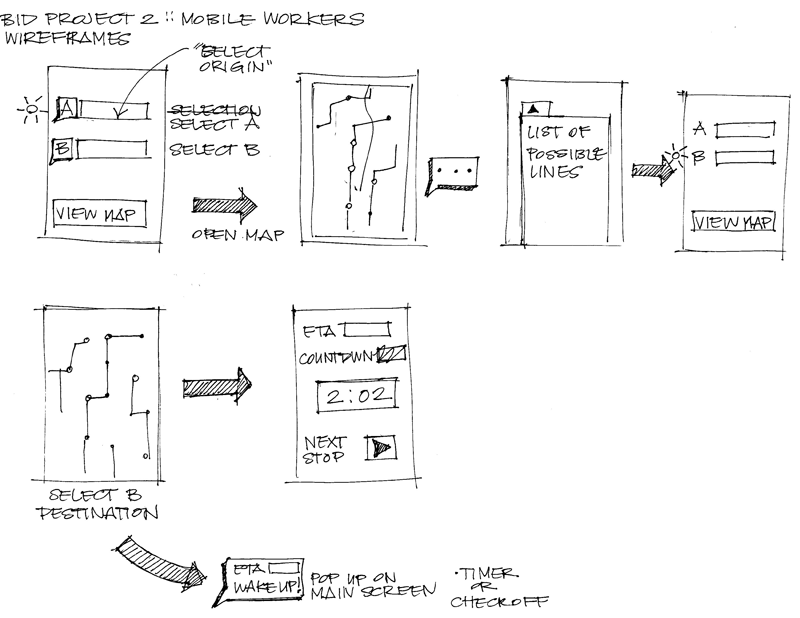 BID PROJECT 2 :: MOBILE WORKERS
WIREFRAMES
"SELECT
ORIGIN"
A
SELECTION
SELECT A
B
SELECT B
VIEW MAP
OPEN MAP
...
LIST OF
POSSIBLE
LINES
A
B
VIEW MAP
SELECT B
DESTINATION
ETA
COUNTDWN
2:02
NEXT
STOP
ETA
WAKE UP!
POP UP ON
MAIN SCREEN
· TIMER
OR
CHECKOFF